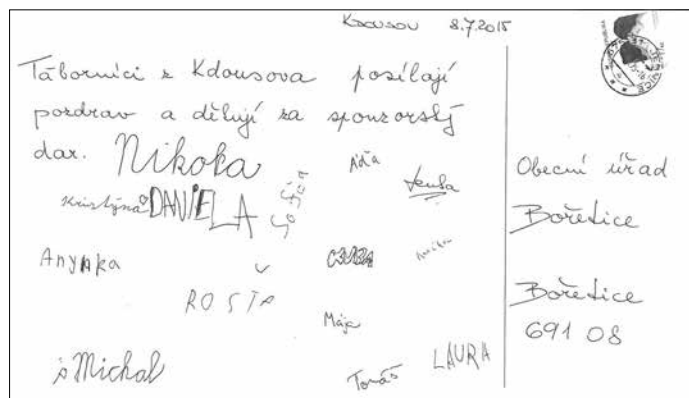 Kdousov 8.7.2015
Táborníci z Kdousova posílají
pozdrav a děkují za sponzorský
dar.
Nikoka
Áďa
Lenka
Kristýna
DANIELA
Sofia
Anynka
ROSŤA
Mája
Michal
Tomáš
LAURA
Obecní úřad
Bořetice
Bořetice
691 08